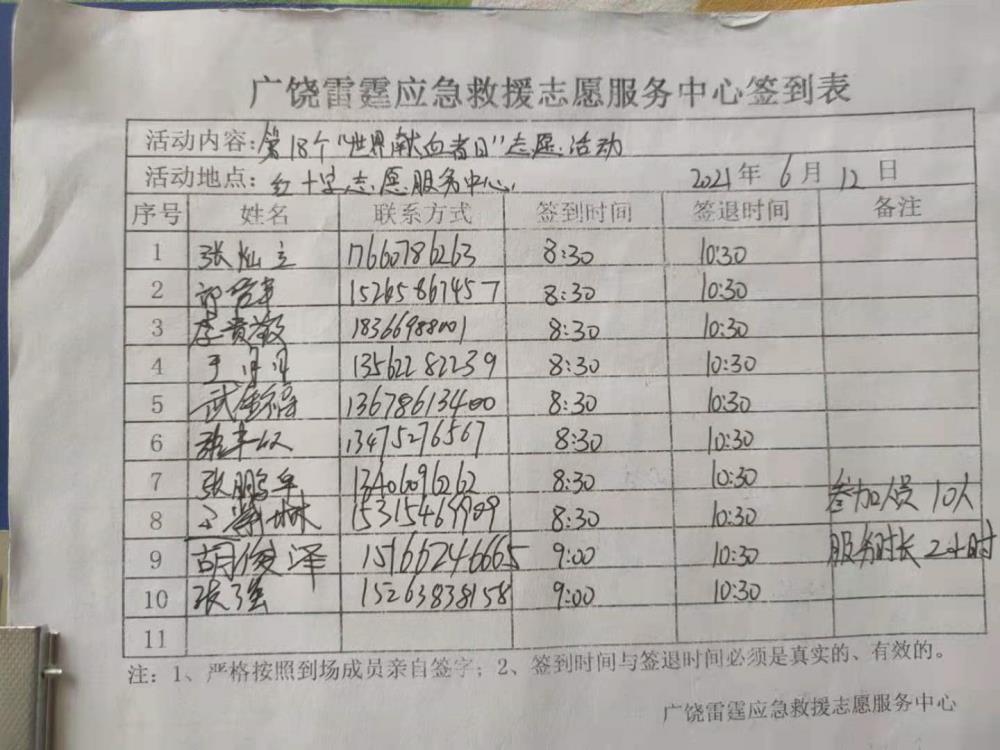 广饶雷霆应急救援志愿服务中心签到表
活动内容:第18个"世界献血者日"志愿活动
活动地点:红十字志愿服务中心 2021年6月12日
序号 姓名 联系方式 签到时间 签退时间 备注
1 张灿立 17660786263 8:30 10:30
2 15265867457 8:30 10:30
3 李贵敏 18366988001 8:30 10:30
4 于丹丹 13562282239 8:30 10:30
5 13678613400 8:30 10:30
6 13475276567 8:30 10:30
7 张鹏年 13406096262 8:30 10:30
8 15315469909 8:30 10:30 参加人员10人
9 胡俊泽 15166246665 9:00 10:30 服务时长2小时
10 张强 15263838158 9:00 10:30
11
注:1、严格按照到场成员亲自签字;2、签到时间与签退时间必须是真实的、有效的。
广饶雷霆应急救援志愿服务中心